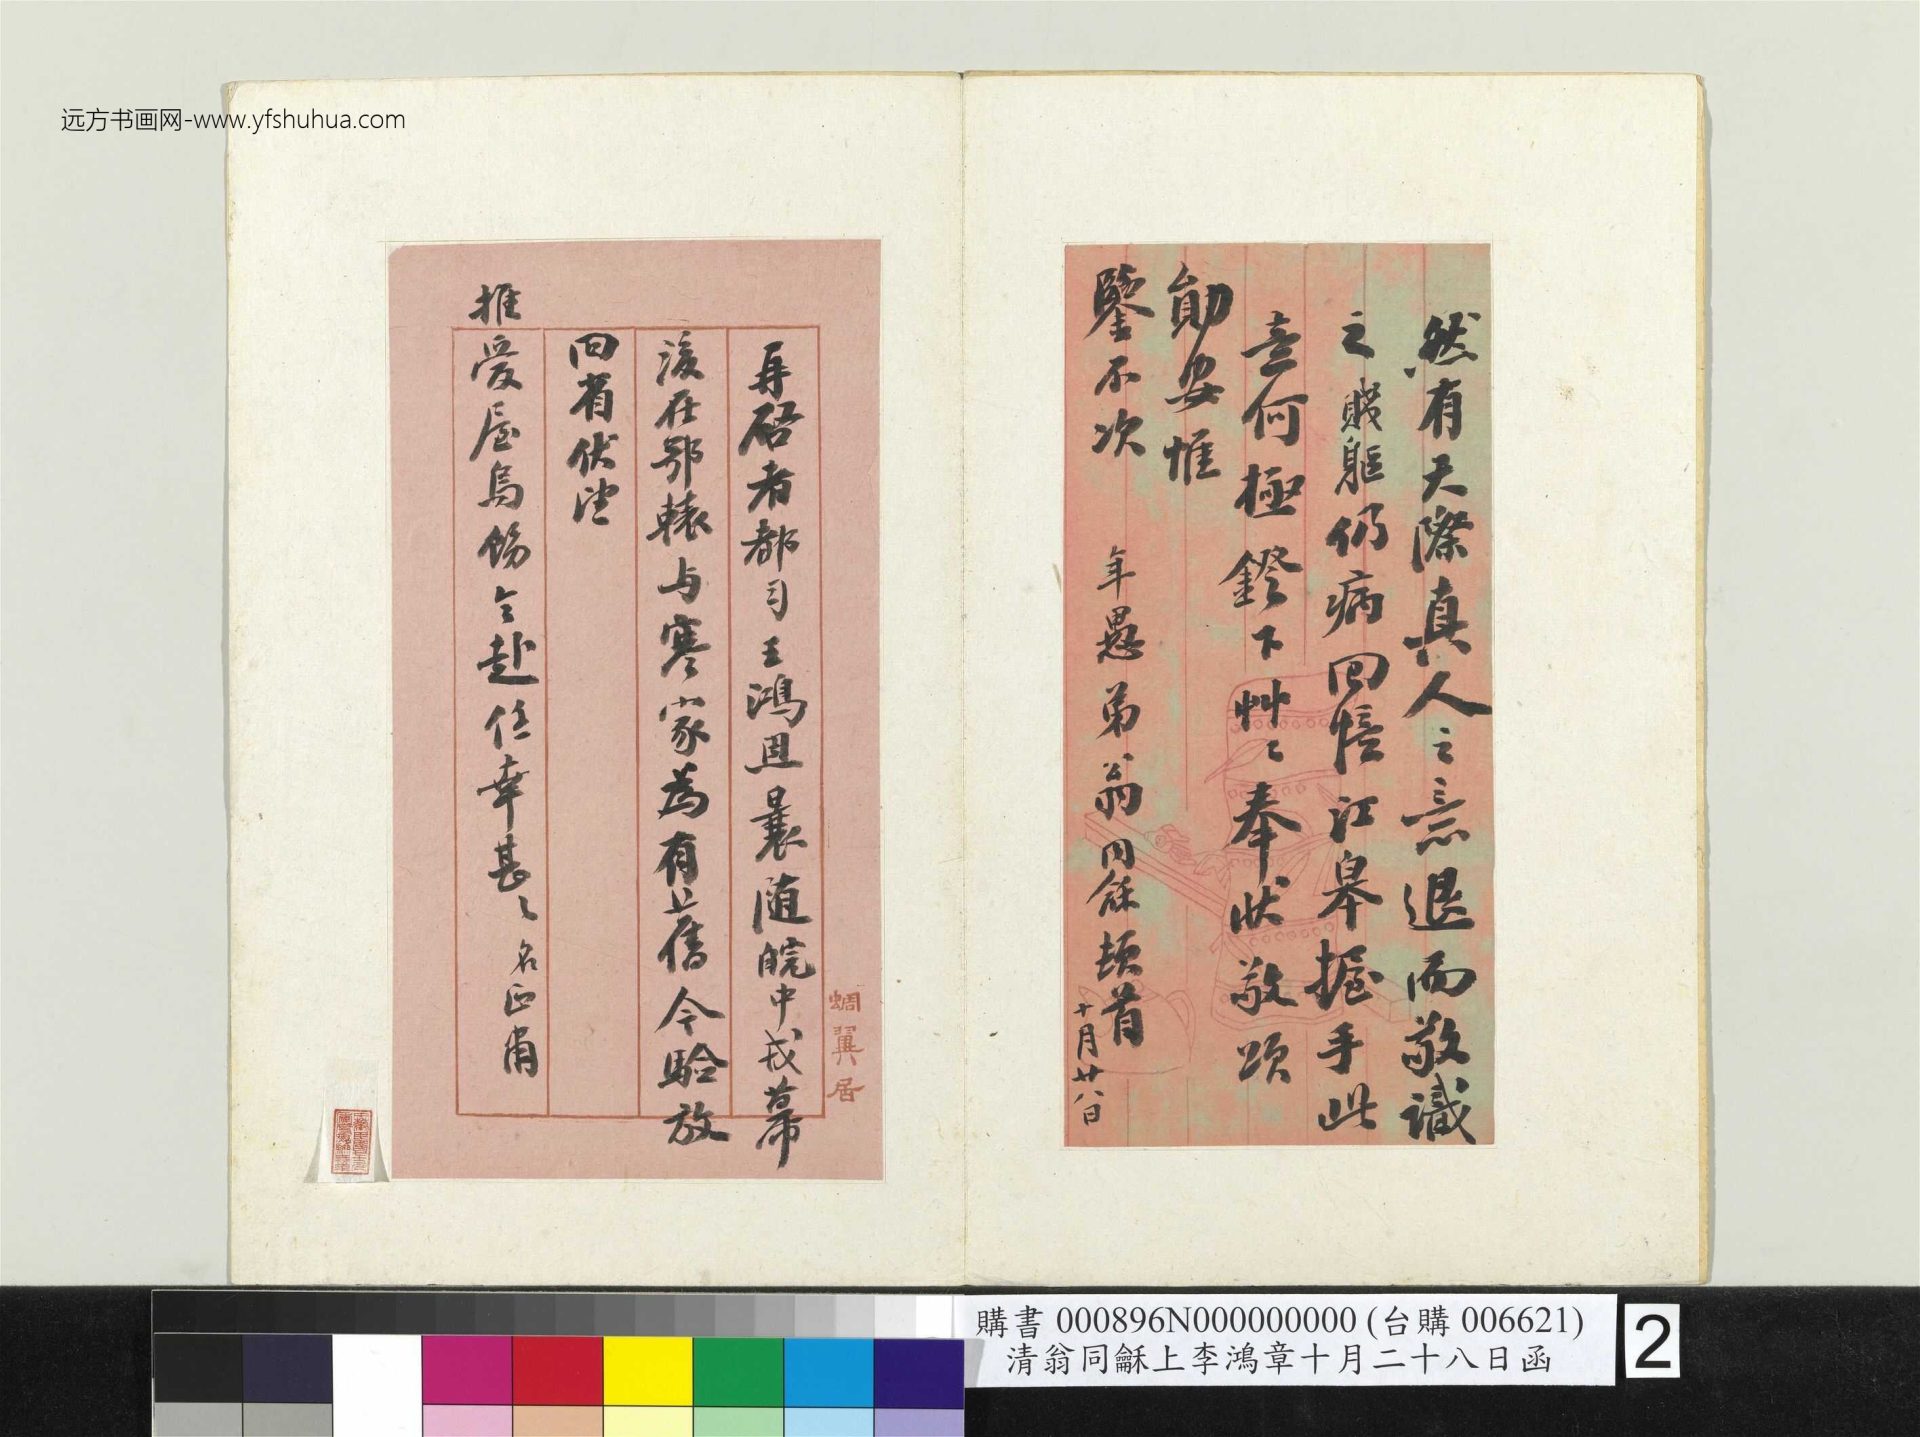 远方书画网-www.yfshuhua.com
然有天際真人之意退而敬識
之賤軀仍病回憶江皋握手此
意何極鐙下艸〻奉狀敬頌
勛安惟
鑒不次
年愚弟翁同龢頓首
十月廿八日
再啓者都司王鴻恩曩隨皖中戎幕
後在鄂轅与寒家為有舊今驗放
回省伏望
推愛屋烏飭令赴任幸甚〻名正肅
蜩翼居
購書 000896N000000000 (台購 006621)
清翁同龢上李鴻章十月二十八日函
2